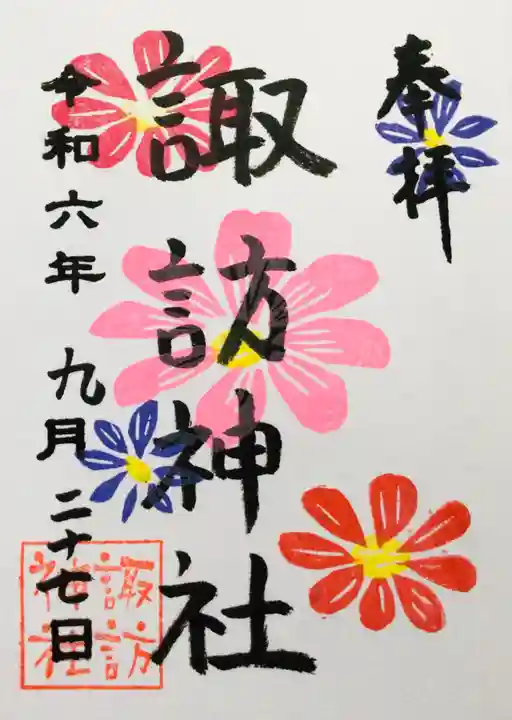 奉拝
諏訪神社
令和六年 九月二十七日
諏訪
神社